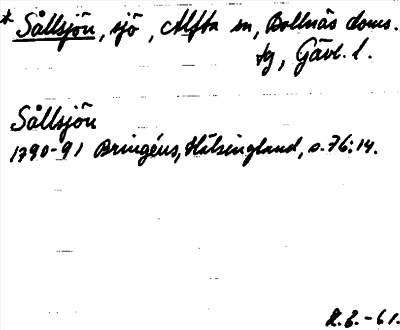 * Sållsjön, sjö, Alfta sn, Bollnäs doms.
tg, Gävl. l.
Sållsjön
1790-91 Bringéus, Hälsingland, s. 76:14.
H.B.-61.